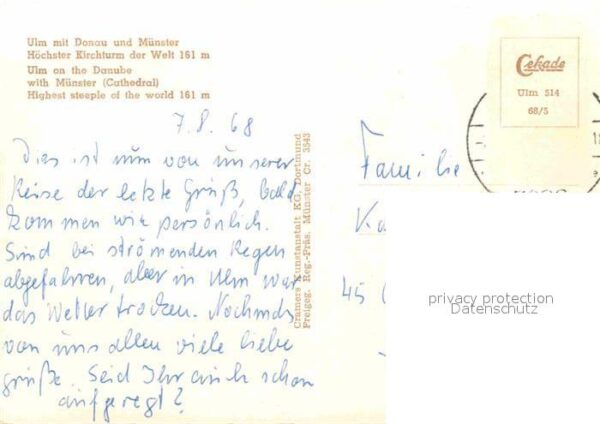 Ulm mit Donau und Münster
Höchster Kirchturm der Welt 161 m
Ulm on the Danube
with Münster (Cathedral)
Highest steeple of the world 161 m
Cekade
Ulm 514
68/5
7.8.68
Dies ist nun von unserer
Reise der letzte Gruß, bald
kommen wir persönlich.
Sind bei strömenden Regen
abgefahren, aber in Ulm war
das Wetter trocken. Nochmals
von uns allen viele liebe
Grüße. Seid Ihr auch schon
aufgeregt?
Cramers Kunstanstalt KG, Dortmund
Freigeg. Reg.-Präs. Münster Cr. 3543
Familie
Ka
45
privacy protection
Datenschutz